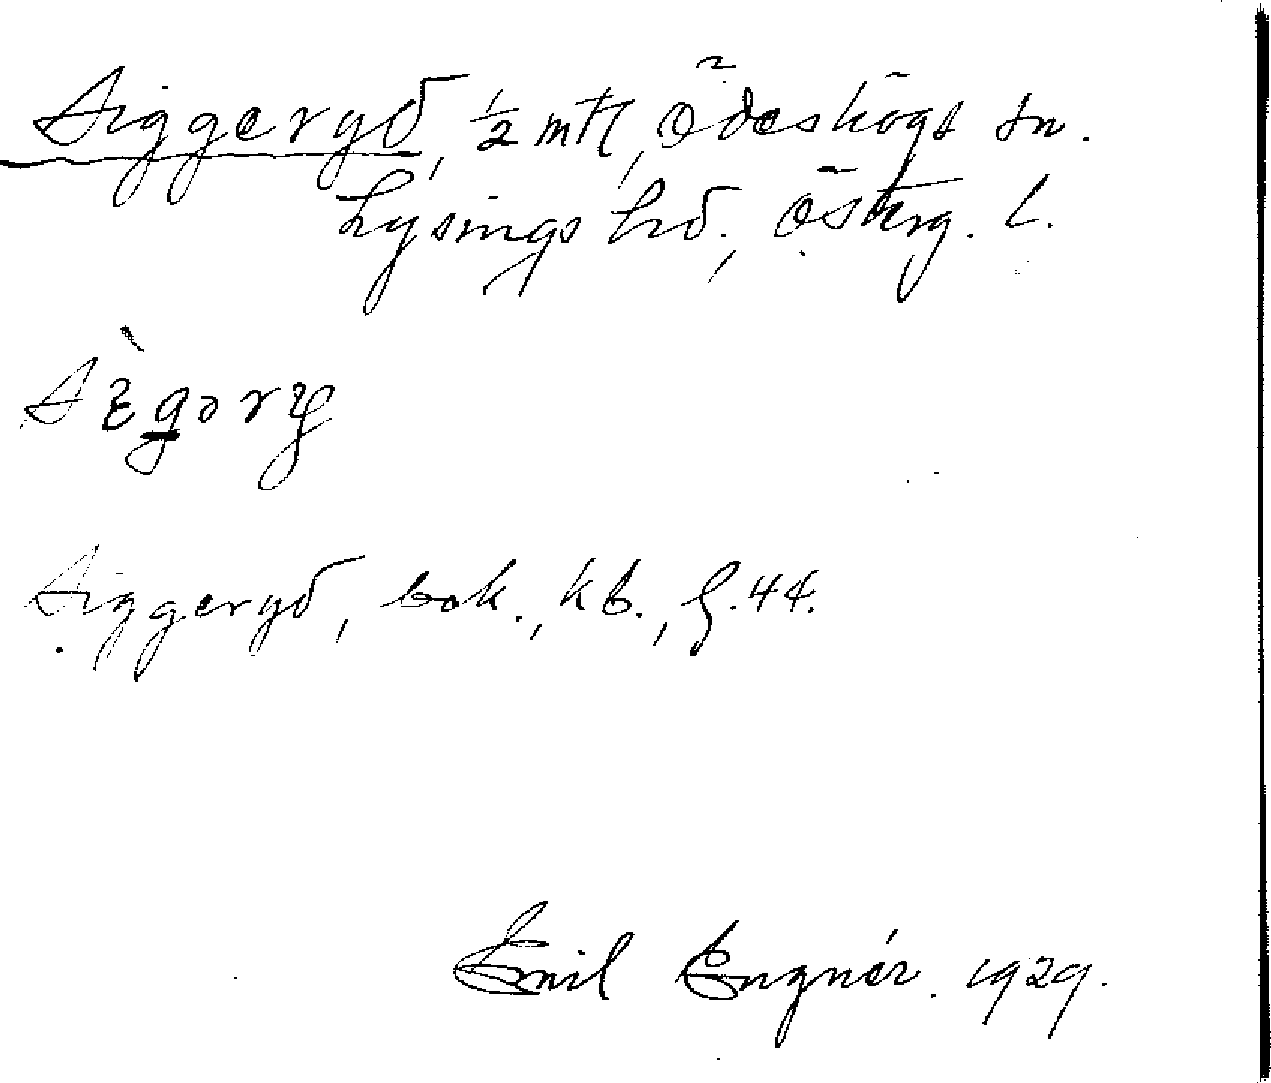 Siggeryd, 1/2 mtl, Ödeshögs sn.
Lysings hd., Österg. l.
Sɛ̀gəry
Siggeryd, bok., kb., §. 44.
Emil Engnér. 1929.